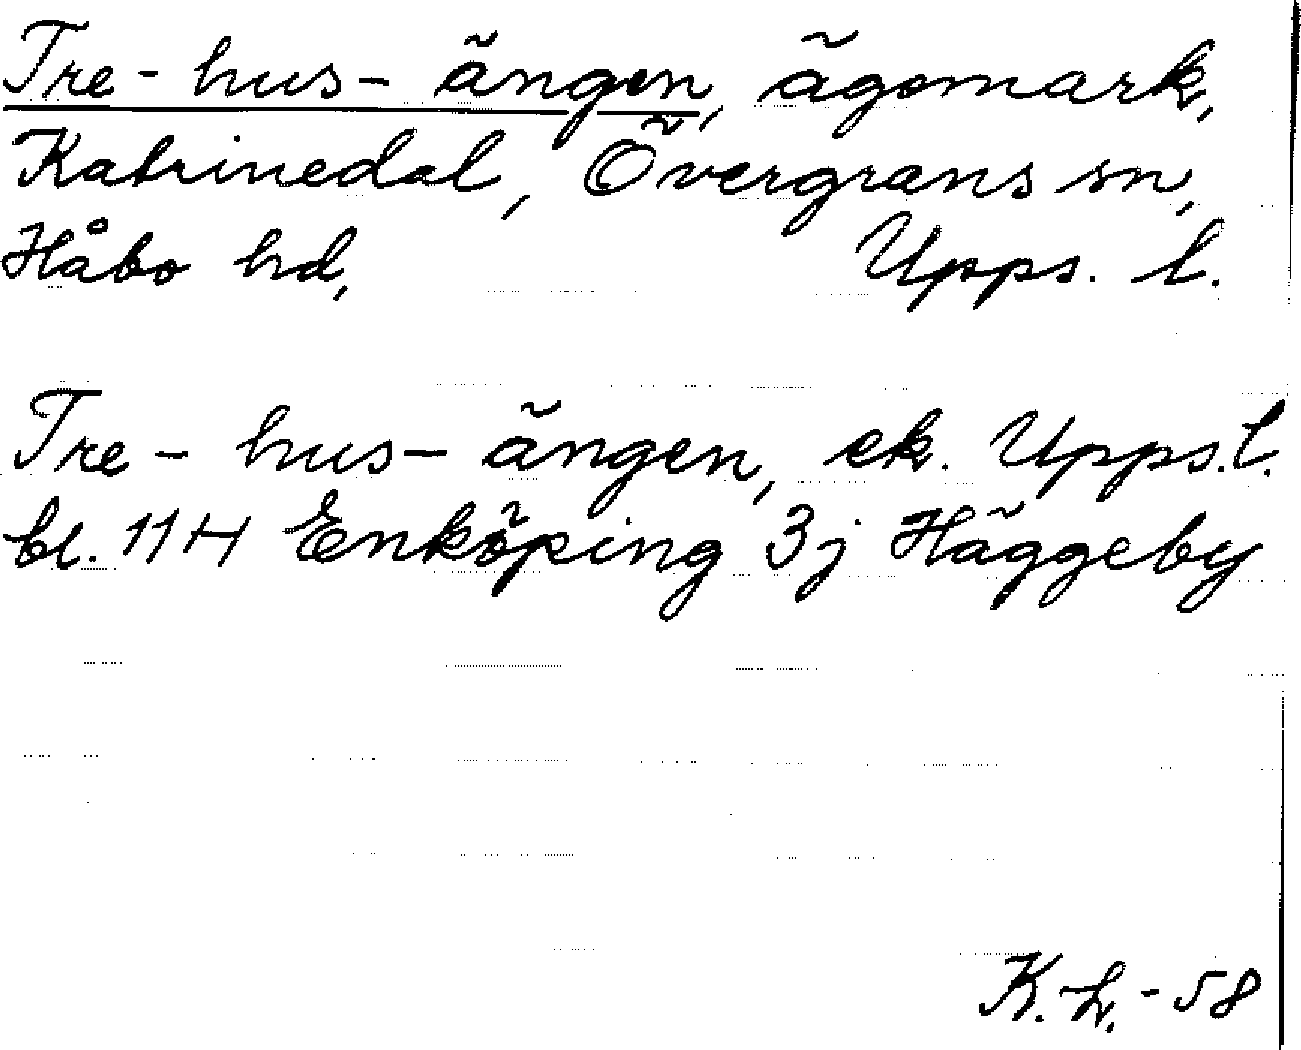 Tre-hus-ängen, ägomark,
Katrinedal, Övergrans sn,
Håbo hd, Upps. l.
Tre-hus-ängen, ek. Upps. l.
bl. 114 Enköping 3j Häggeby
K.L.-58